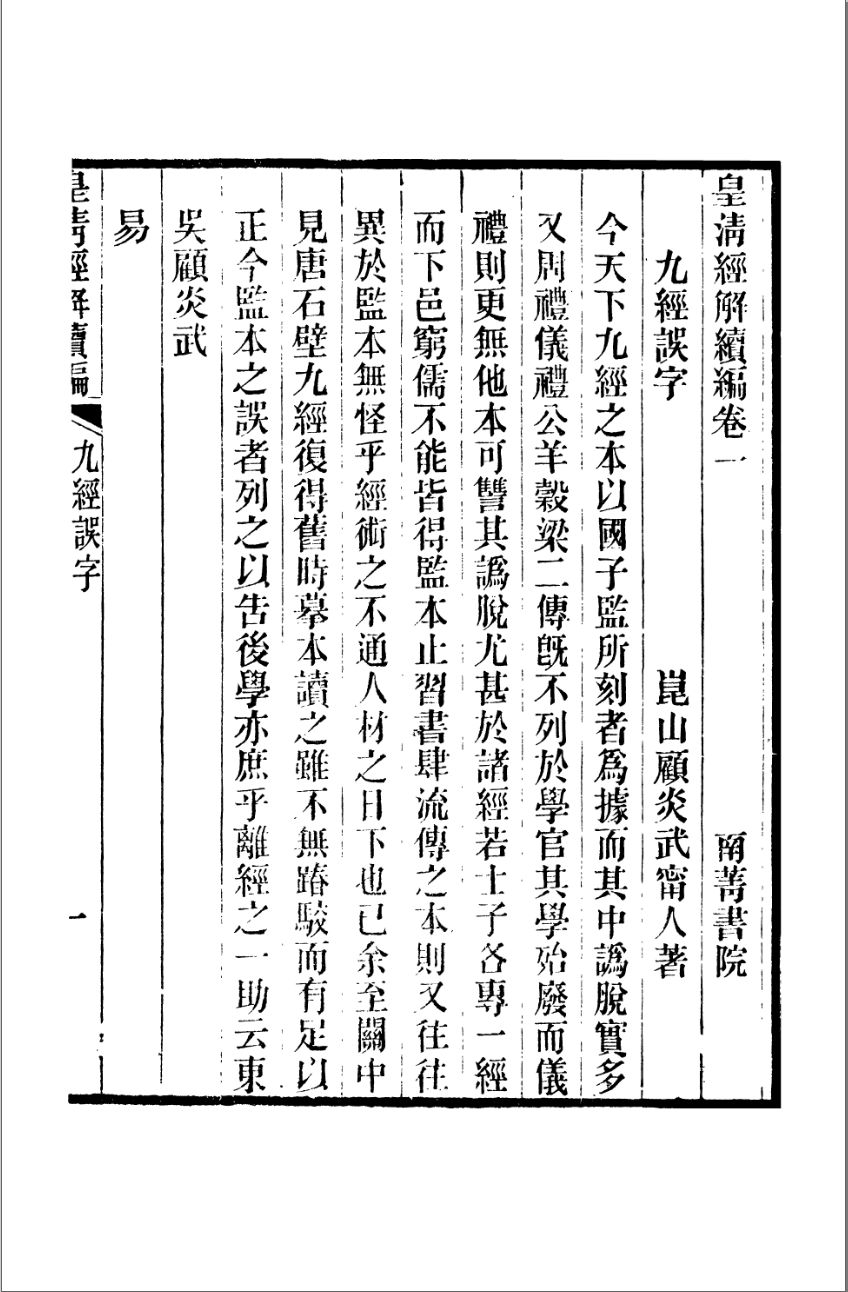 皇清經解續編卷一 南菁書院
九經誤字 崑山顧炎武甯人著
今天下九經之本以國子監所刻者爲據而其中譌脫實多
又周禮儀禮公羊穀梁二傳旣不列於學官其學殆廢而儀
禮則更無他本可讐其譌脫尤甚於諸經若士子各專一經
而下邑窮儒不能皆得監本止習書肆流傳之本則又往往
異於監本無怪乎經術之不通人材之日下也已余至關中
見唐石壁九經復得舊時摹本讀之雖不無踳駮而有足以
正今監本之誤者列之以告後學亦庶乎離經之一助云東
吳顧炎武
易
皇清經解續編 九經誤字 一